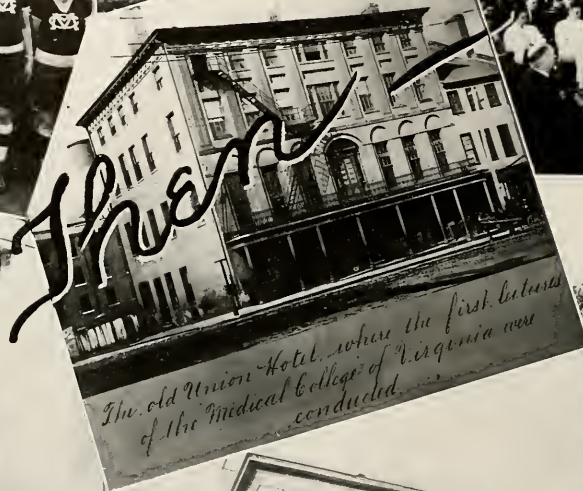 Then
The old Union Hotel where the first lectures
of the Medical College of Virginia were
conducted